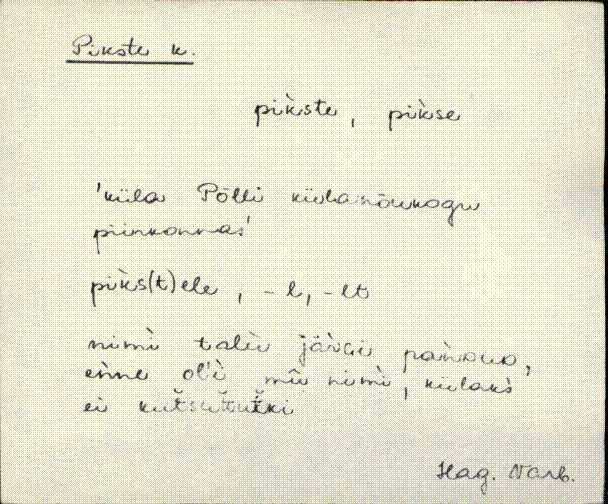 Pikste k.
pìkste, pìkse
'küla Põlli külanõukogu
piirkonnas'
pìks(t)ele, -l, -lt
nimì talù järài pàǹduo,
eǹne ol'ì mū nimì, külaks̀
ei kutsuttutki
Hag. Varb.